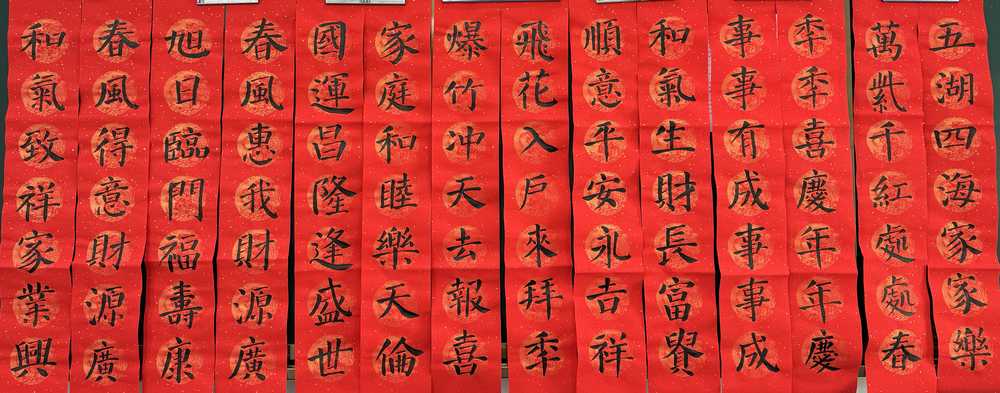 五湖四海家家樂
萬紫千紅處處春
秊秊喜慶年年慶
事事有成事事成
和氣生財長富貴
順意平安永吉祥
飛花入戶來拜秊
爆竹冲天去報喜
家庭和睦樂天倫
國運昌隆逢盛世
春風惠我財源廣
旭日臨門福壽康
春風得意財源廣
和氣致祥家業興